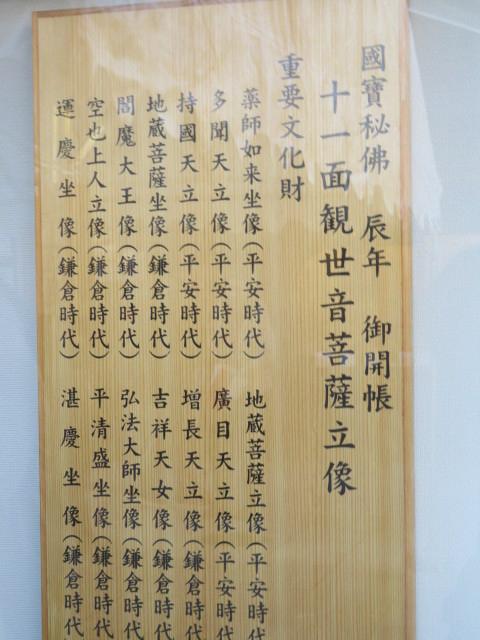 國寶秘佛 辰年 御開帳
十一面観世音菩薩立像
重要文化財
薬師如来坐像(平安時代) 地蔵菩薩立像(平安時
多聞天立像(平安時代) 廣目天立像(平安時代
持國天立像(平安時代) 増長天立像(鎌倉時代
地蔵菩薩坐像(鎌倉時代) 吉祥天女像(鎌倉時代
閻魔大王像(鎌倉時代) 弘法大師坐像(鎌倉時代
空也上人立像(鎌倉時代) 平清盛坐像(鎌倉時代
運慶坐像(鎌倉時代) 湛慶坐像(鎌倉時代